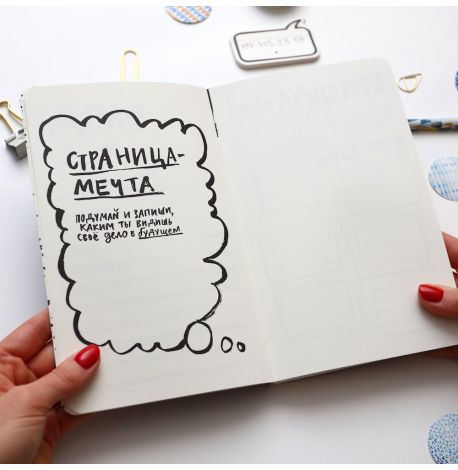 СТРАНИЦА-
МЕЧТА
ПОДУМАЙ И ЗАПИШИ,
КАКИМ ТЫ ВИДИШЬ
СВОЕ ДЕЛО В БУДУЩЕМ